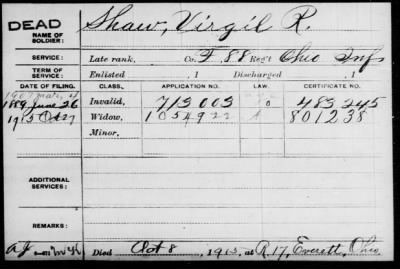 DEAD
NAME OF SOLDIER:
Shaw, Virgil R.
SERVICE:
Late rank, Co. F, 88 Reg't Ohio Inf
TERM OF SERVICE:
Enlisted , 1 Discharged , 1
DATE OF FILING. CLASS. APPLICATION NO. LAW. CERTIFICATE NO.
1889 June 26 Invalid, 713003 483245
1915 Oct 27 Widow, 1054922 801238
Minor.
ADDITIONAL SERVICES:
REMARKS:
Died Oct 8, 1915, at R 17, Everett, Ohio